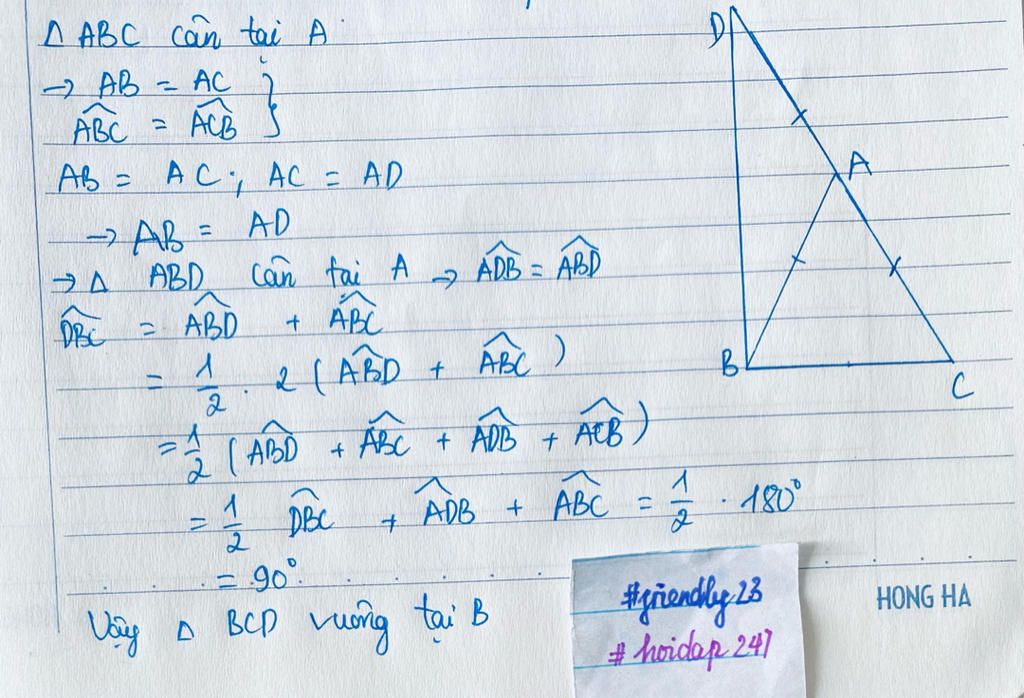 Δ ABC cân tại A
→ AB = AC }
\widehat{ABC} = \widehat{ACB} }
AB = AC ; AC = AD
→ AB = AD
→ Δ ABD cân tại A → \widehat{ADB} = \widehat{ABD}
\widehat{DBC} = \widehat{ABD} + \widehat{ABC}
= 1/2 . 2 ( \widehat{ABD} + \widehat{ABC} )
= 1/2 ( \widehat{ABD} + \widehat{ABC} + \widehat{ADB} + \widehat{ACB} )
= 1/2 \widehat{DBC} + \widehat{ADB} + \widehat{ABC} = 1/2 . 180°
= 90°
Vậy Δ BCD vuông tại B
D
A
B
C
#friendly23
#hoidap247
HONG HA